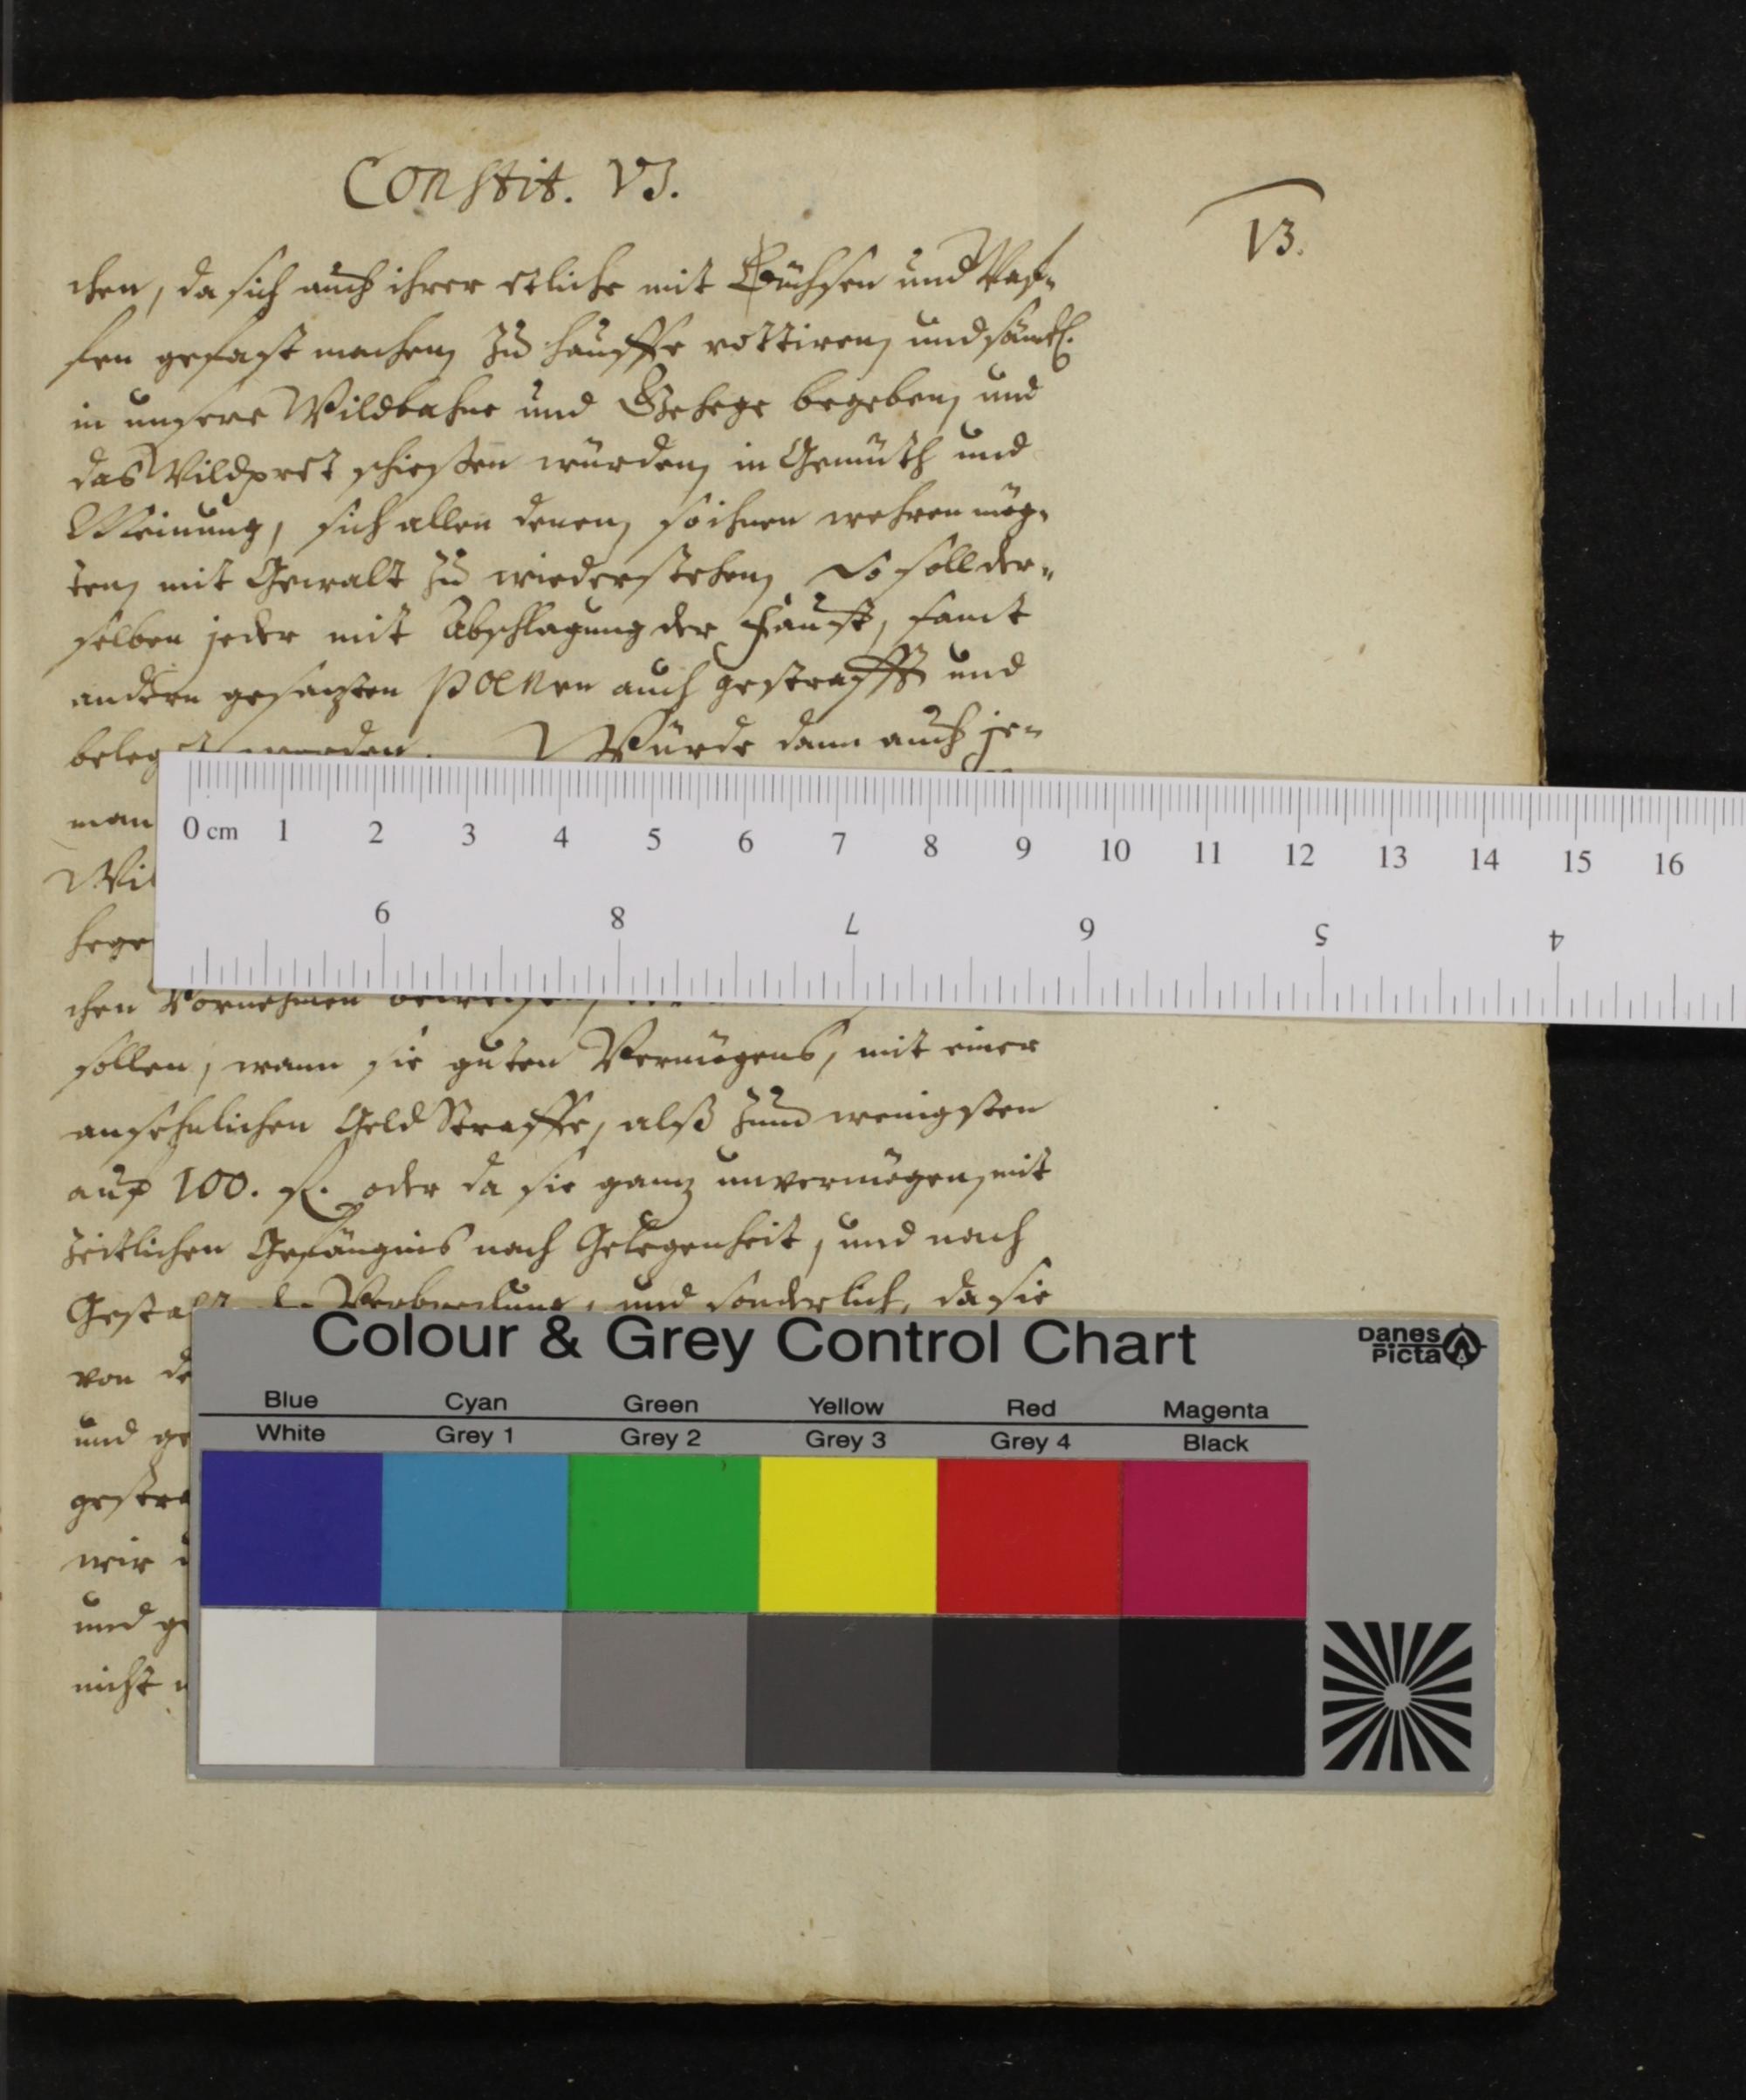 Constit. VI.
13.
chen, da sich auch ihrer etliche mit Büchsen und Waf-
fen gefast machen, zu hauffe rottiren, und sämtl.
in unsere Wildbahne und Gehege begeben, und
das Wildpret schiessen würden, in Gemüth und
Meinung, sich allen denen, so ihnen wehren mög-
ten, mit Gewalt zu wiederstehen, So soll der-
selben jeder mit Abschlagung der Faust, samt
andern gesazten poenen auch gestrafft und
beleget werden. Würde dann auch je-
man
Wil
hege
chen Vornehmen
sollen, wann sie guten Vermögens, mit einer
ansehnlichen Geld Straffe, alß zum wenigsten
auf 100. fl. oder da sie ganz unvermögen, mit
zeitlichen Gefängnis nach Gelegenheit, und nach
Gestalt der Verbrechung, und sonderlich, da sie
von de
und ge
gestra
wir
und ge
nicht
0 cm 1 2 3 4 5 6 7 8 9 10 11 12 13 14 15 16
9 8 7 6 5 4
Colour & Grey Control Chart
Danes
Picta
Blue Cyan Green Yellow Red Magenta
White Grey 1 Grey 2 Grey 3 Grey 4 Black